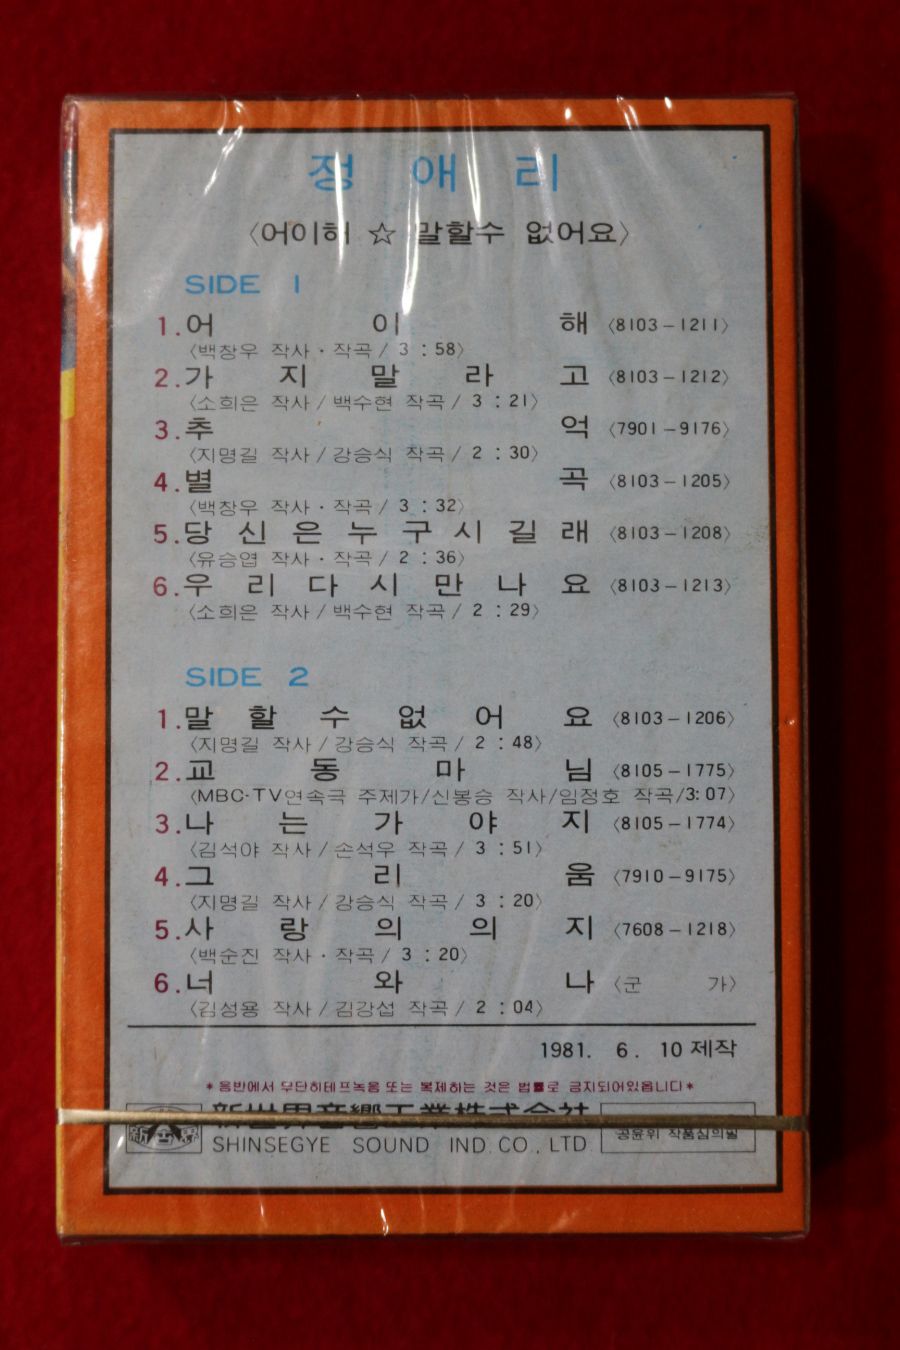 정 애 리
〈어이해 ☆ 말할수 없어요〉
SIDE 1
1. 어 이 해 〈8103-1211〉
〈백창우 작사·작곡/ 3 : 58〉
2. 가 지 말 라 고 〈8103-1212〉
〈소희은 작사/ 백수현 작곡/ 3 : 21〉
3. 추 억 〈7901-9176〉
〈지명길 작사/강승식 작곡/ 2 : 30〉
4. 별 곡 〈8103-1205〉
〈백창우 작사·작곡/ 3 : 32〉
5. 당 신 은 누 구 시 길 래 〈8103-1208〉
〈유승엽 작사·작곡/ 2 : 36〉
6. 우 리 다 시 만 나 요 〈8103-1213〉
〈소희은 작사/ 백수현 작곡/ 2 : 29〉
SIDE 2
1. 말 할 수 없 어 요 〈8103-1206〉
〈지명길 작사/강승식 작곡/ 2 : 48〉
2. 교 동 마 님 〈8105-1775〉
〈MBC·TV연속극 주제가/신봉승 작사/임정호 작곡/3: 07〉
3. 나 는 가 야 지 〈8105-1774〉
〈김석야 작사/손석우 작곡/ 3 : 51〉
4. 그 리 움 〈7910-9175〉
〈지명길 작사/강승식 작곡/ 3 : 20〉
5. 사 랑 의 의 지 〈7608-1218〉
〈백순진 작사·작곡/ 3 : 20〉
6. 너 와 나 〈군 가〉
〈김성용 작사/김강섭 작곡/ 2 : 04〉
1981. 6. 10 제작
*음반에서 무단히테프녹음 또는 복제하는 것은 법률로 금지되어있읍니다*
新世界音響工業株式会社
新世界
SHINSEGYE SOUND IND. CO., LTD
공윤위 작품심의필